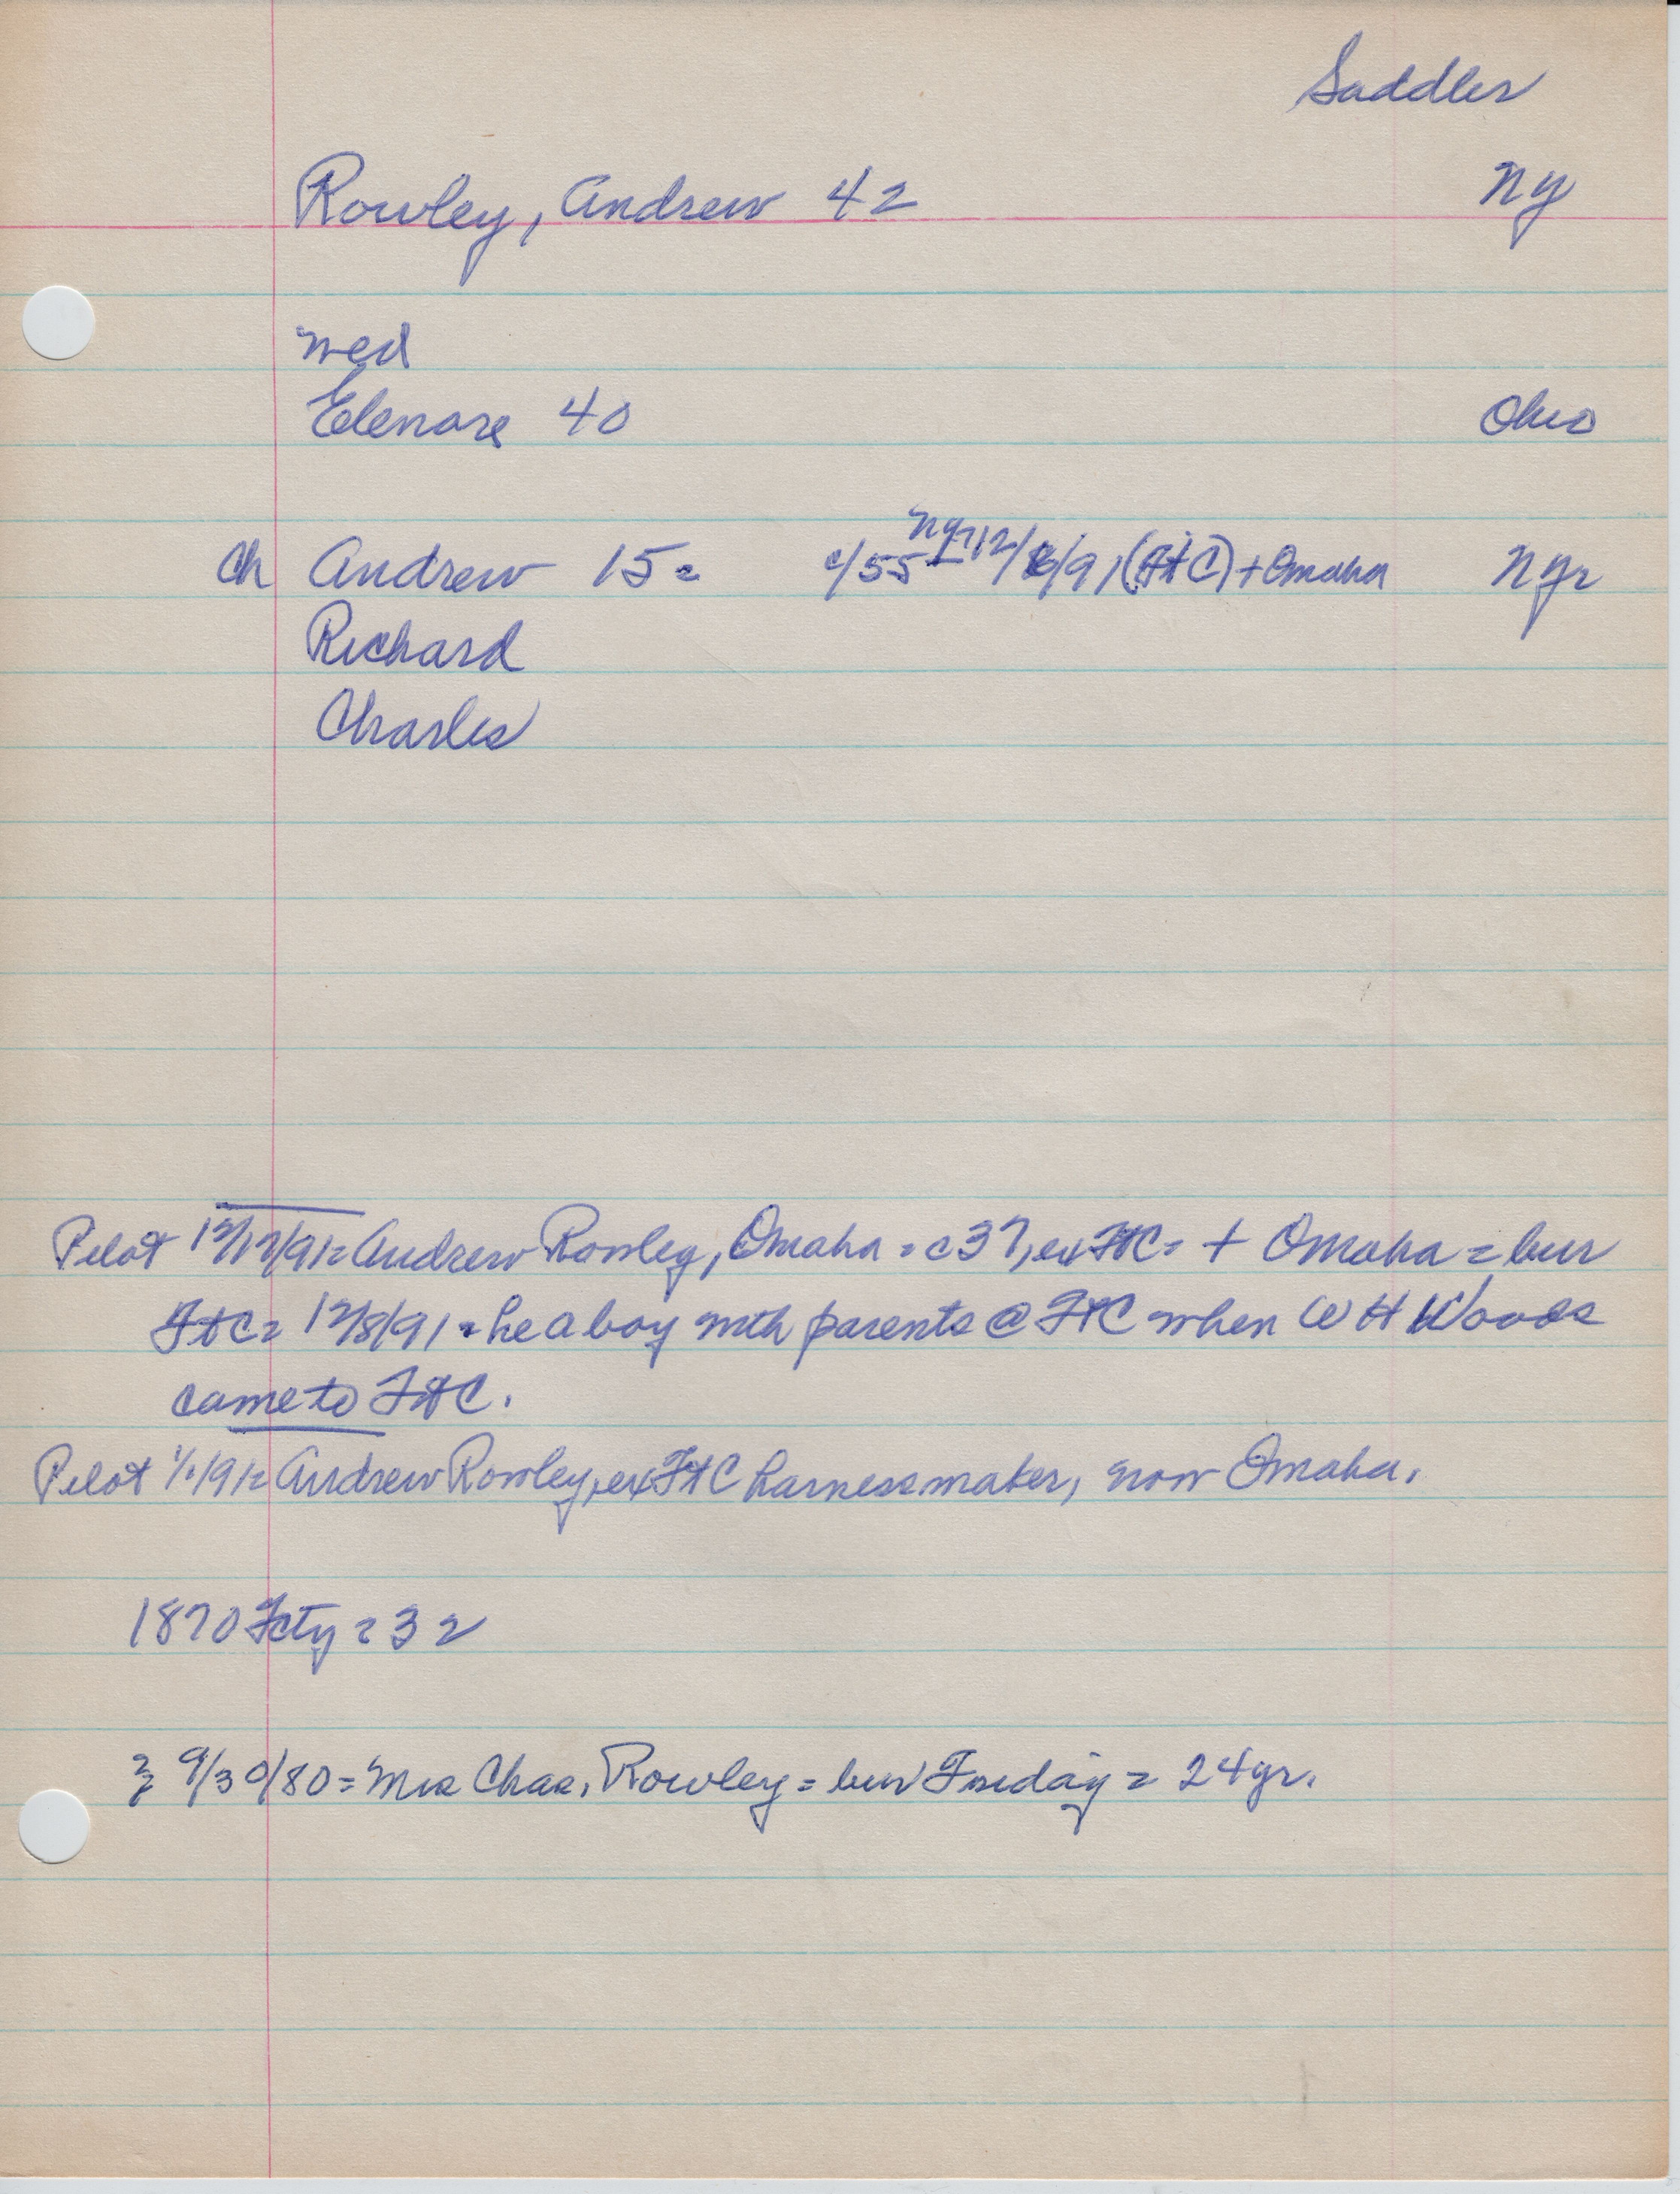 Saddler
Rowley, Andrew 42 NY
wed
Elenore 40 Ohio
NY
Ch Andrew 15 = c/55 - 12/8/91 (FtC) + Omaha NYr
Richard
Charles
Pilot 12/12/91 = Andrew Rowley, Omaha = c37, ex FtC = + Omaha = bur
FtC = 12/8/91 = he a boy with parents @ FtC when W H Woods
came to FtC.
Pilot 1/1/91 = Andrew Rowley, ex FtC harnessmaker, now Omaha.
1870 Fcty = 32
9/30/80 = Mrs Chas. Rowley = bur Friday = 24yr.